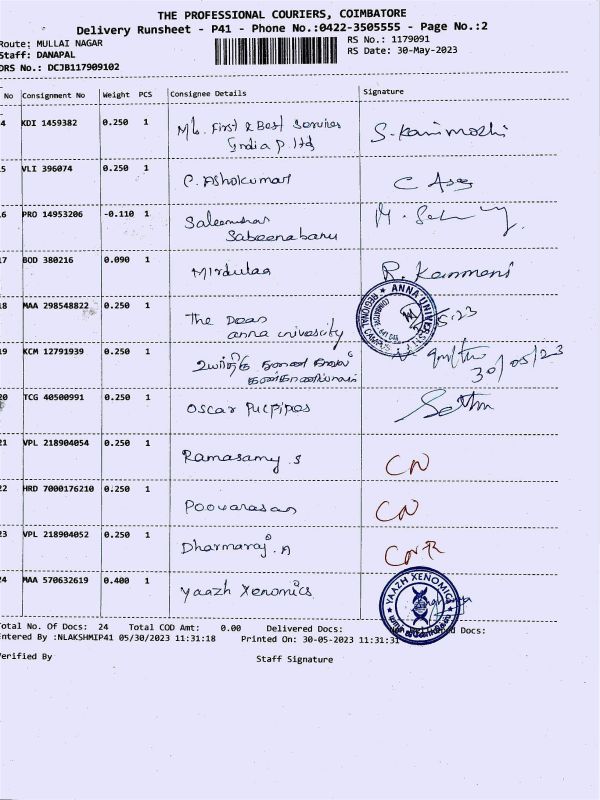 THE PROFESSIONAL COURIERS, COIMBATORE
Delivery Runsheet - P41 - Phone No.:0422-3505555 - Page No.:2
Route: MULLAI NAGAR
RS No.: 1179091
Staff: DANAPAL
RS Date: 30-May-2023
DRS No.: DCJB117909102
No Consignment No Weight PCS Consignee Details Signature
4 KDI 1459382 0.250 1 M/s. First & Best Services
India P. Ltd
S. Kanimozhi
5 VLI 396074 0.250 1 P. Ashokumar
6 PRO 14953206 -0.110 1
Sabeenabanu
7 BOD 380216 0.090 1 Mirdulaa
18 MAA 298548822 0.250 1 The Dean
anna univescity
ANNA UNIVERSITY
REGIONAL CAMPUS
COIMBATORE
5.23
19 KCM 12791939 0.250 1
30/05/23
20 TCG 40500991 0.250 1 Oscar
21 VPL 218904054 0.250 1 Ramasamy. S
CN
22 HRD 7000176210 0.250 1 Poovarasan
CN
23 VPL 218904052 0.250 1 Dharmaraj. A
24 MAA 570632619 0.400 1 Yaazh Xenomics
YAAZH XENOMICS
Total No. Of Docs: 24 Total COD Amt: 0.00 Delivered Docs: Docs:
Entered By :NLAKSHMIP41 05/30/2023 11:31:18 Printed On: 30-05-2023 11:31:31
Verified By Staff Signature